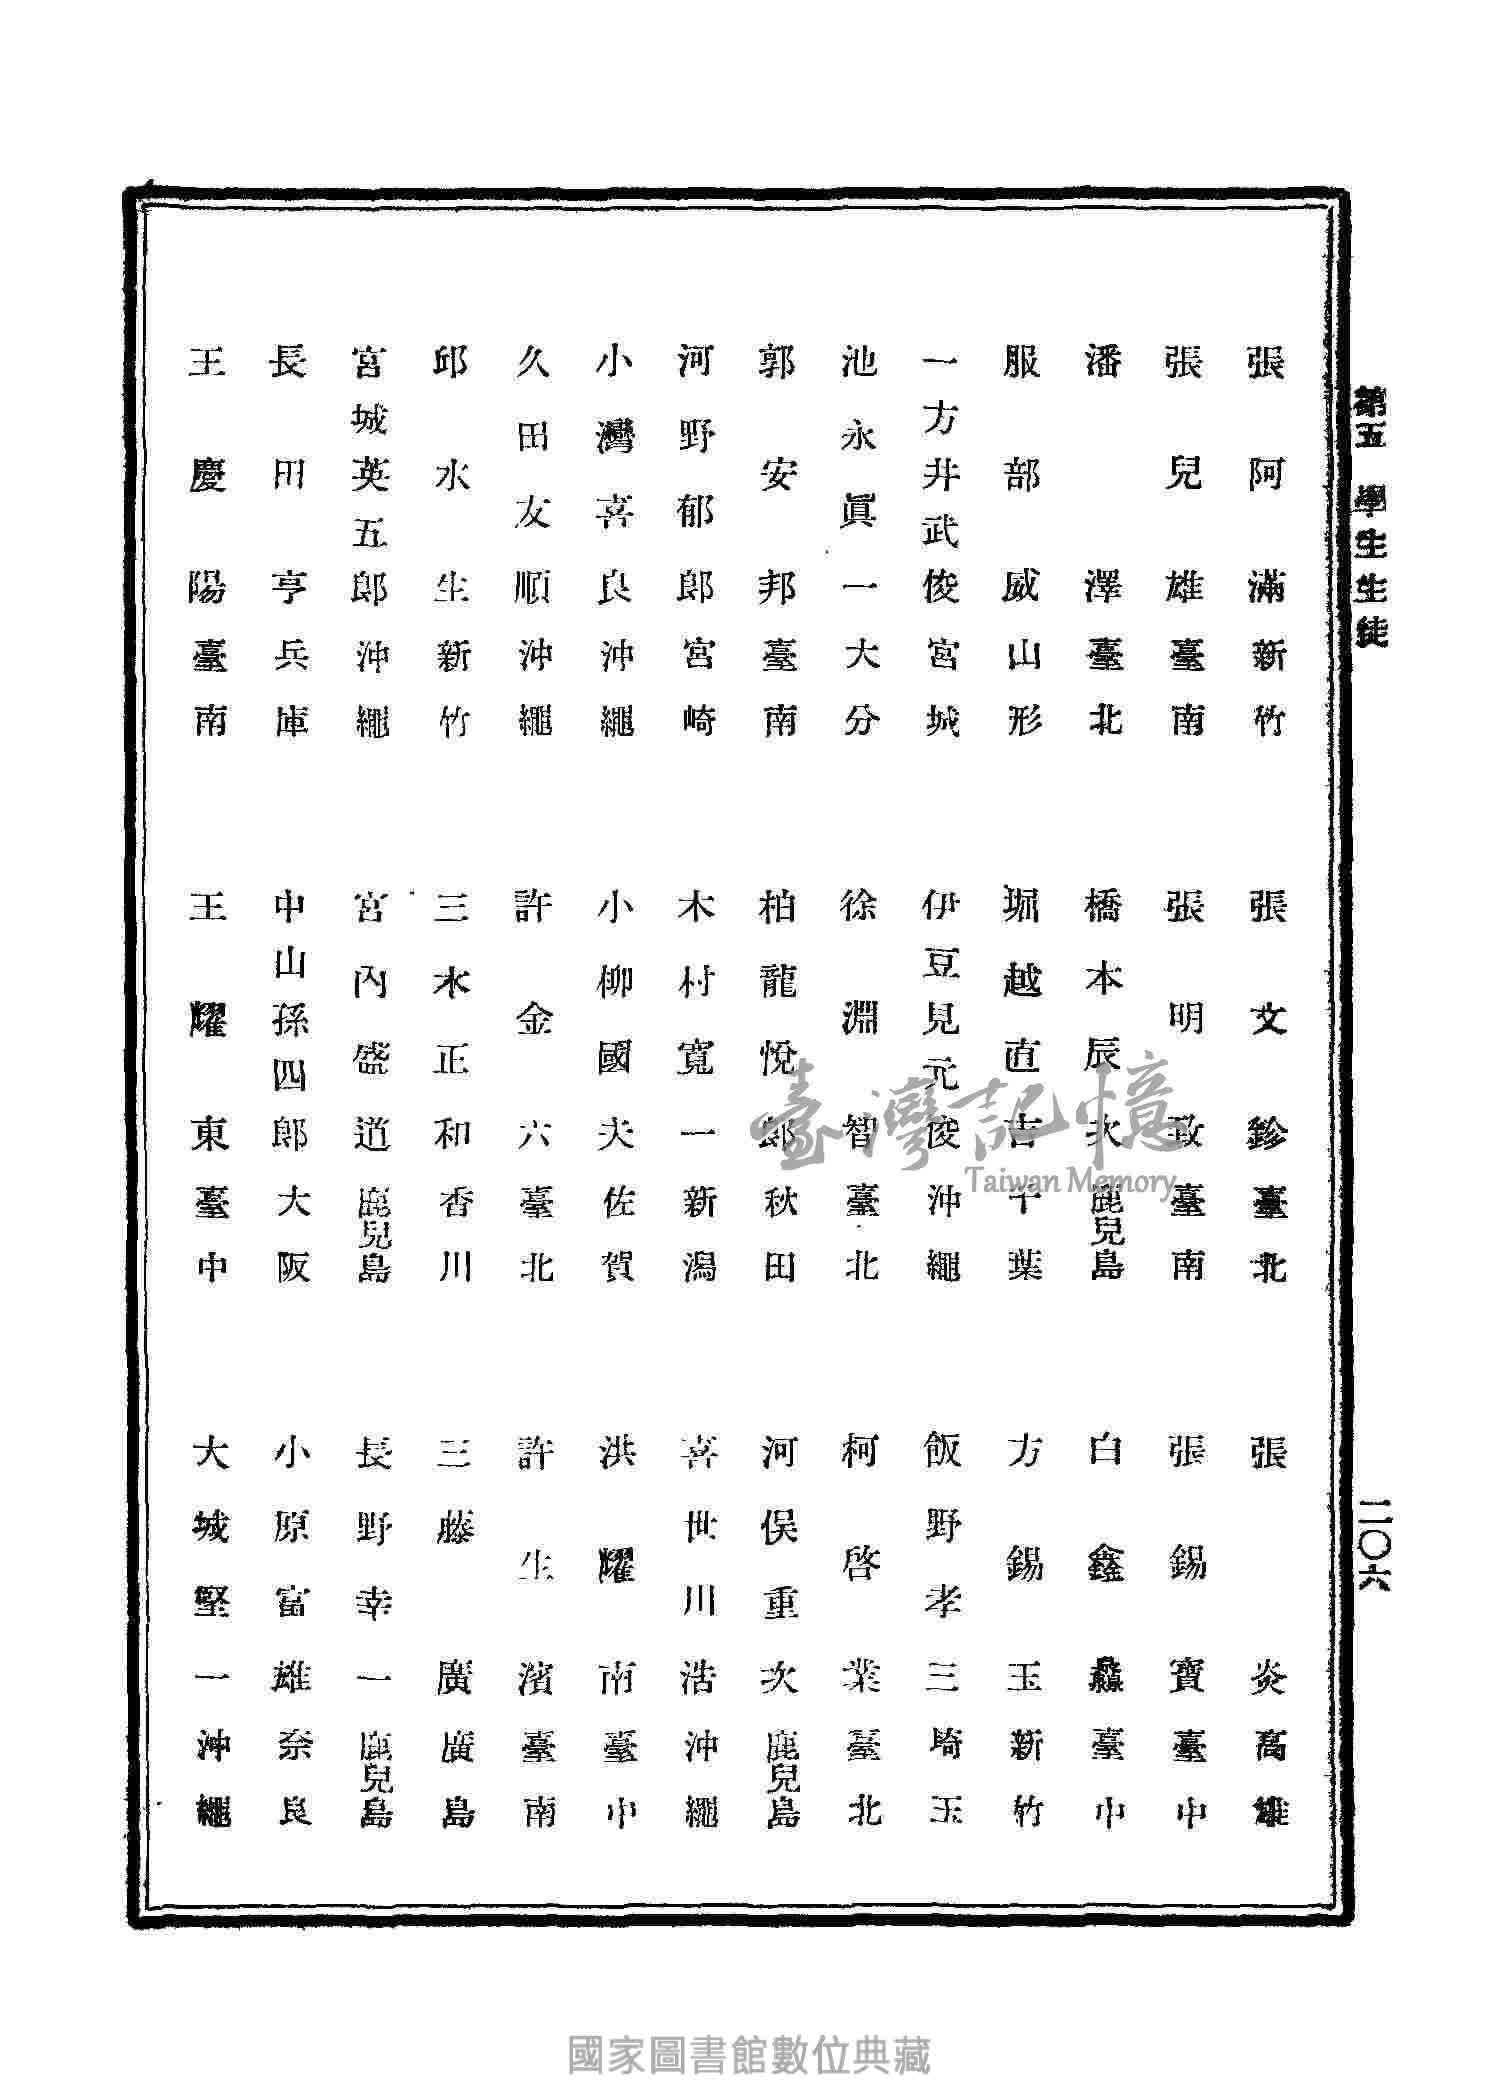 第五 學生生徒
二〇六
張阿滿 新竹
張文鉁 臺北
張炎 高雄
張兒雄 臺南
張明致 臺南
張錫寶 臺中
潘澤 臺北
橋本辰次 鹿兒島
白鑫 臺中
服部威 山形
堀越直吉 千葉
方錫玉 新竹
一方井武俊 宮城
伊豆見元俊 沖繩
飯野孝三 埼玉
池永眞一 大分
徐淵智 臺北
柯啓業 臺北
郭安邦 臺南
柏龍悅郎 秋田
河俣重次 鹿兒島
河野郁郎 宮崎
木村寬一 新潟
喜世川浩 沖繩
小灣喜良 沖繩
小柳國夫 佐賀
洪耀南 臺中
久田友順 沖繩
許金六 臺北
許生濱 臺南
邱水生 新竹
三木正和 香川
三藤廣 廣島
宮城英五郎 沖繩
宮內盛道 鹿兒島
長野幸一 鹿兒島
長田亨 兵庫
中山孫四郎 大阪
小原富雄 奈良
王慶陽 臺南
王耀東 臺中
大城堅一 沖繩
臺灣記憶
Taiwan Memory
國家圖書館數位典藏